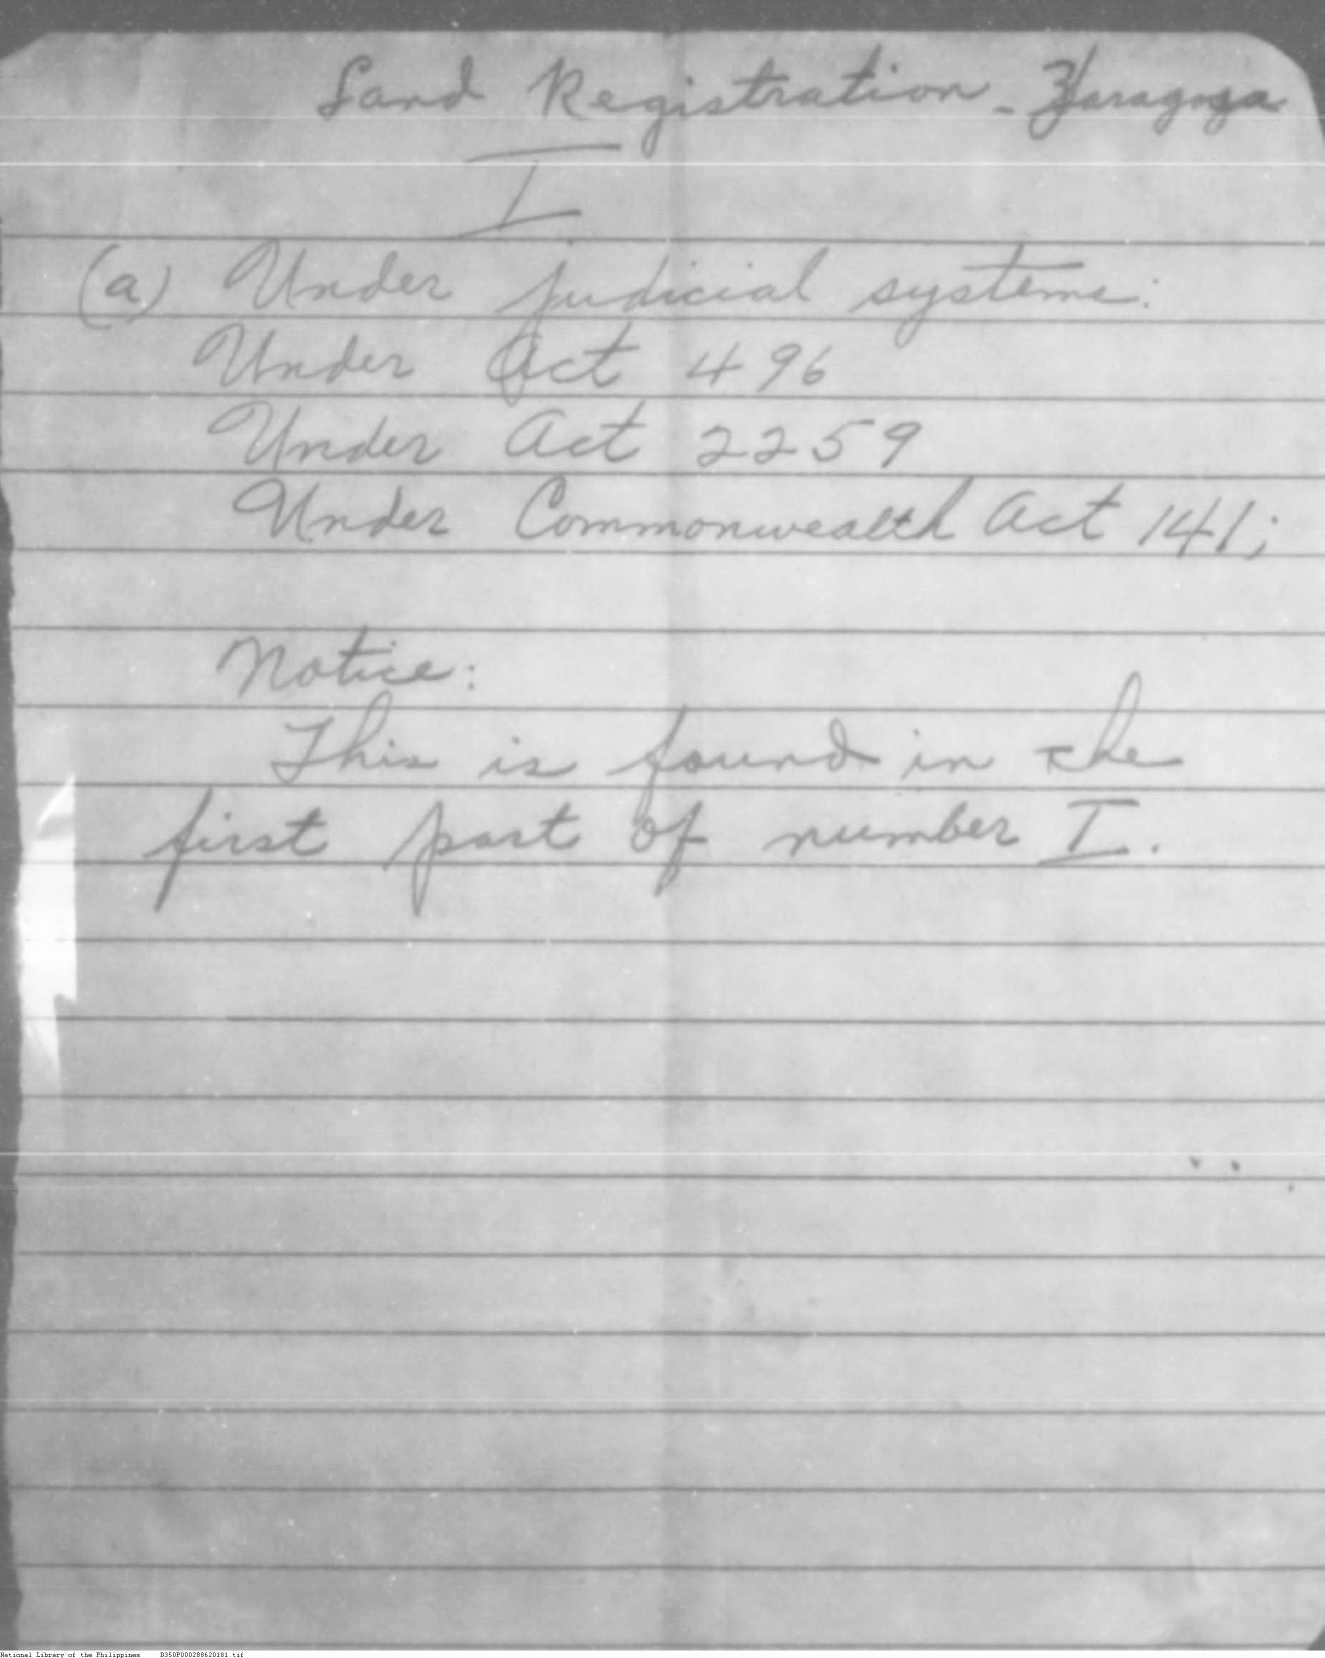 Land Registration - Zaragoza
I
(a) Under judicial systems:
Under Act 496
Under Act 2259
Under Commonwealth Act 141;
Notice:
This is found in the
first part of number I.
National Library of the Philippines D350P000288620181.tif